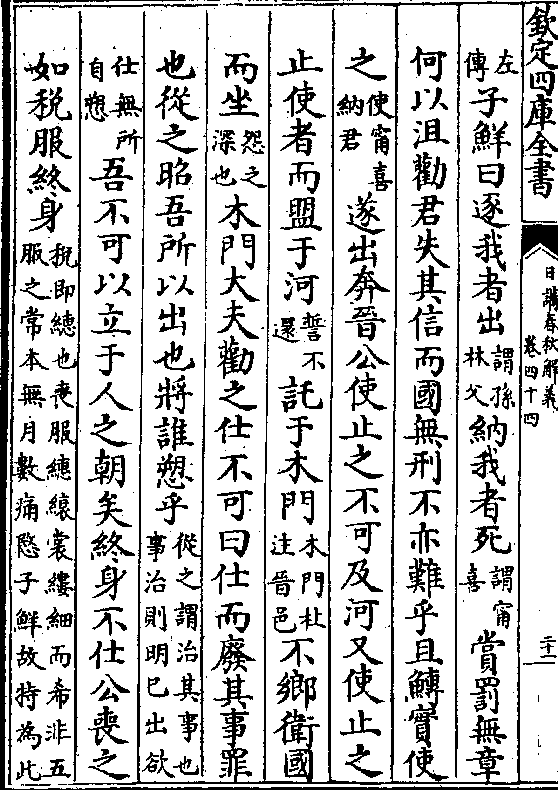 欽定四庫全書
日講春秋解義
卷四十四
二十一
左傳子鮮曰逐我者出謂孫林父納我者死謂甯喜賞罰無章
何以沮勸君失其信而國無刑不亦難乎且鱄實使
之使甯喜納君遂出奔晉公使止之不可及河又使止之
止使者而盟于河誓不還託于木門木門杜注晉邑不鄉衛國
而坐怨之深也木門大夫勸之仕不可曰仕而廢其事罪
也從之昭吾所以出也將誰愬乎從之謂治其事也事治則明已出欲
仕無所自愬吾不可以立于人之朝矣終身不仕公喪之
如稅服終身稅即繐也喪服繐縗裳縷細而希非五服之常本無月數痛愍子鮮故特為此